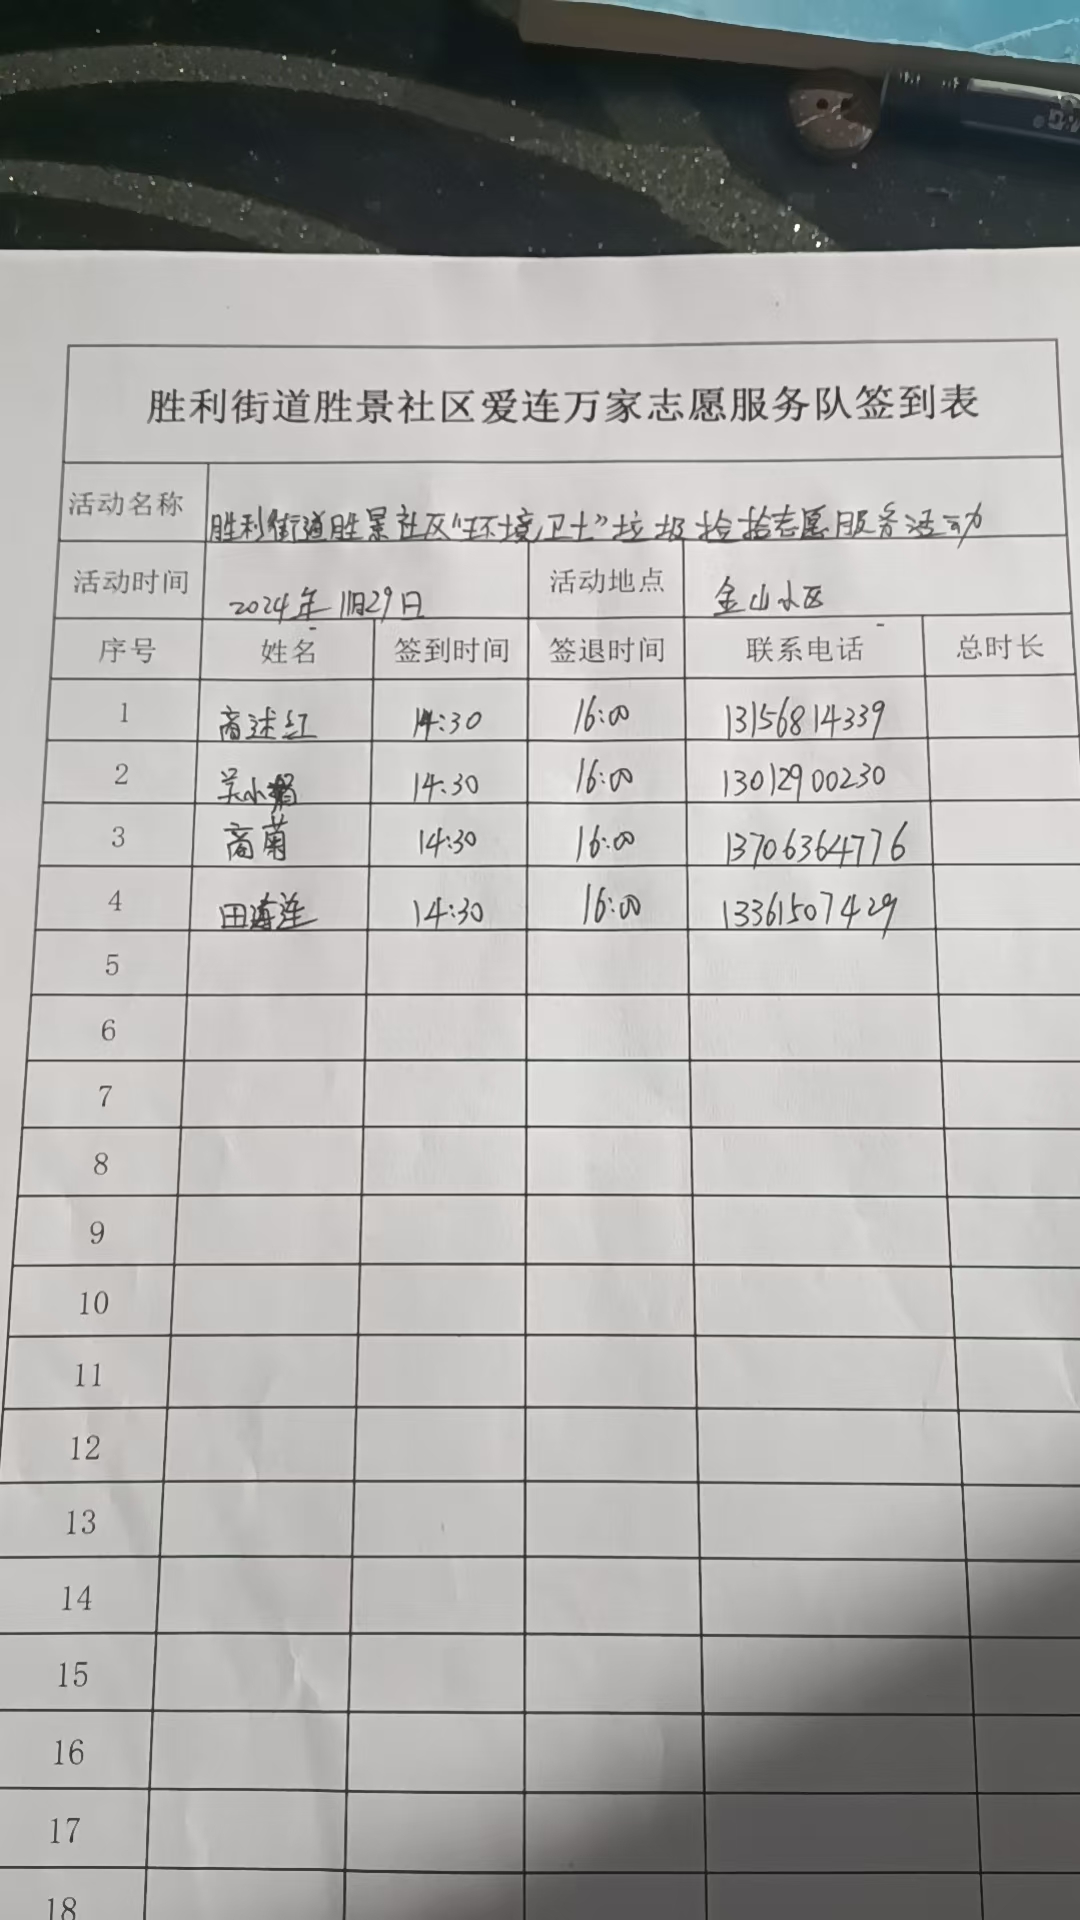 胜利街道胜景社区爱连万家志愿服务队签到表
活动名称 胜利街道胜景社区"环境卫士"垃圾捡拾志愿服务活动
活动时间 2024年11月29日 活动地点 金山小区
序号 姓名 签到时间 签退时间 联系电话 总时长
1 商述红 14:30 16:00 13156814339
2 吴小 14:30 16:00 13012900230
3 商菊 14:30 16:00 13706364776
4 田连 14:30 16:00 13361507429
5
6
7
8
9
10
11
12
13
14
15
16
17
18